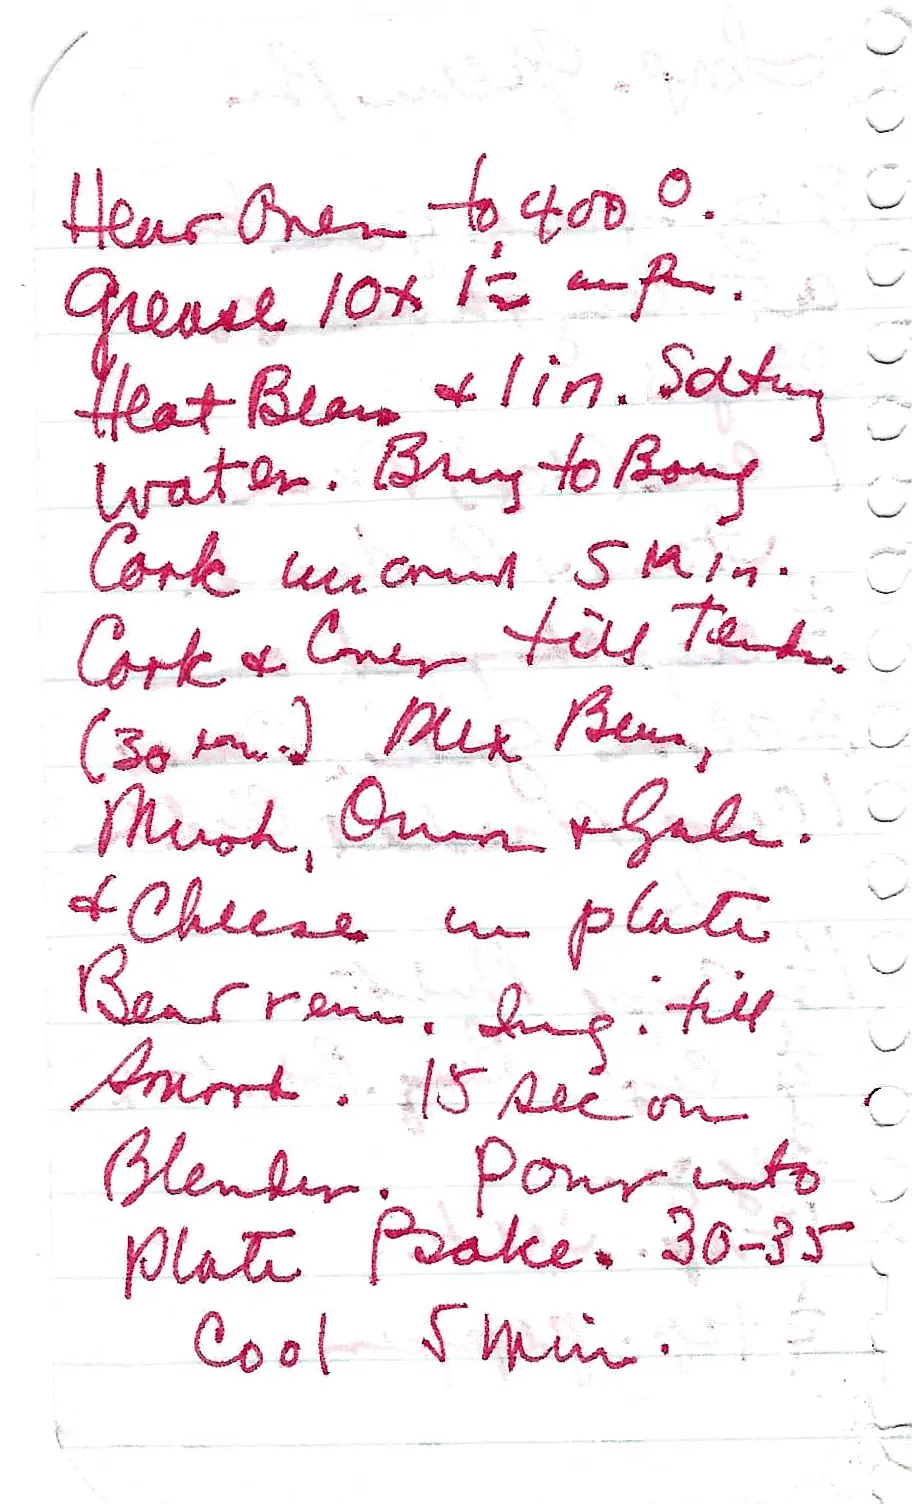 Heat Oven to 400°.
Grease 10 x 1½ in
Heat Beans & 1 in. Salting
water. Bring to Boing
Cook uncovered 5 Min.
Cook & Cover till Tender.
(30 min.) Mix Beans,
Mush, Onion + Garlic.
& Cheese in plate
Beat rem. Ing. till
Smooth. 15 sec on
Blender. Pour into
plate Bake. 30-35
Cool 5 Min.